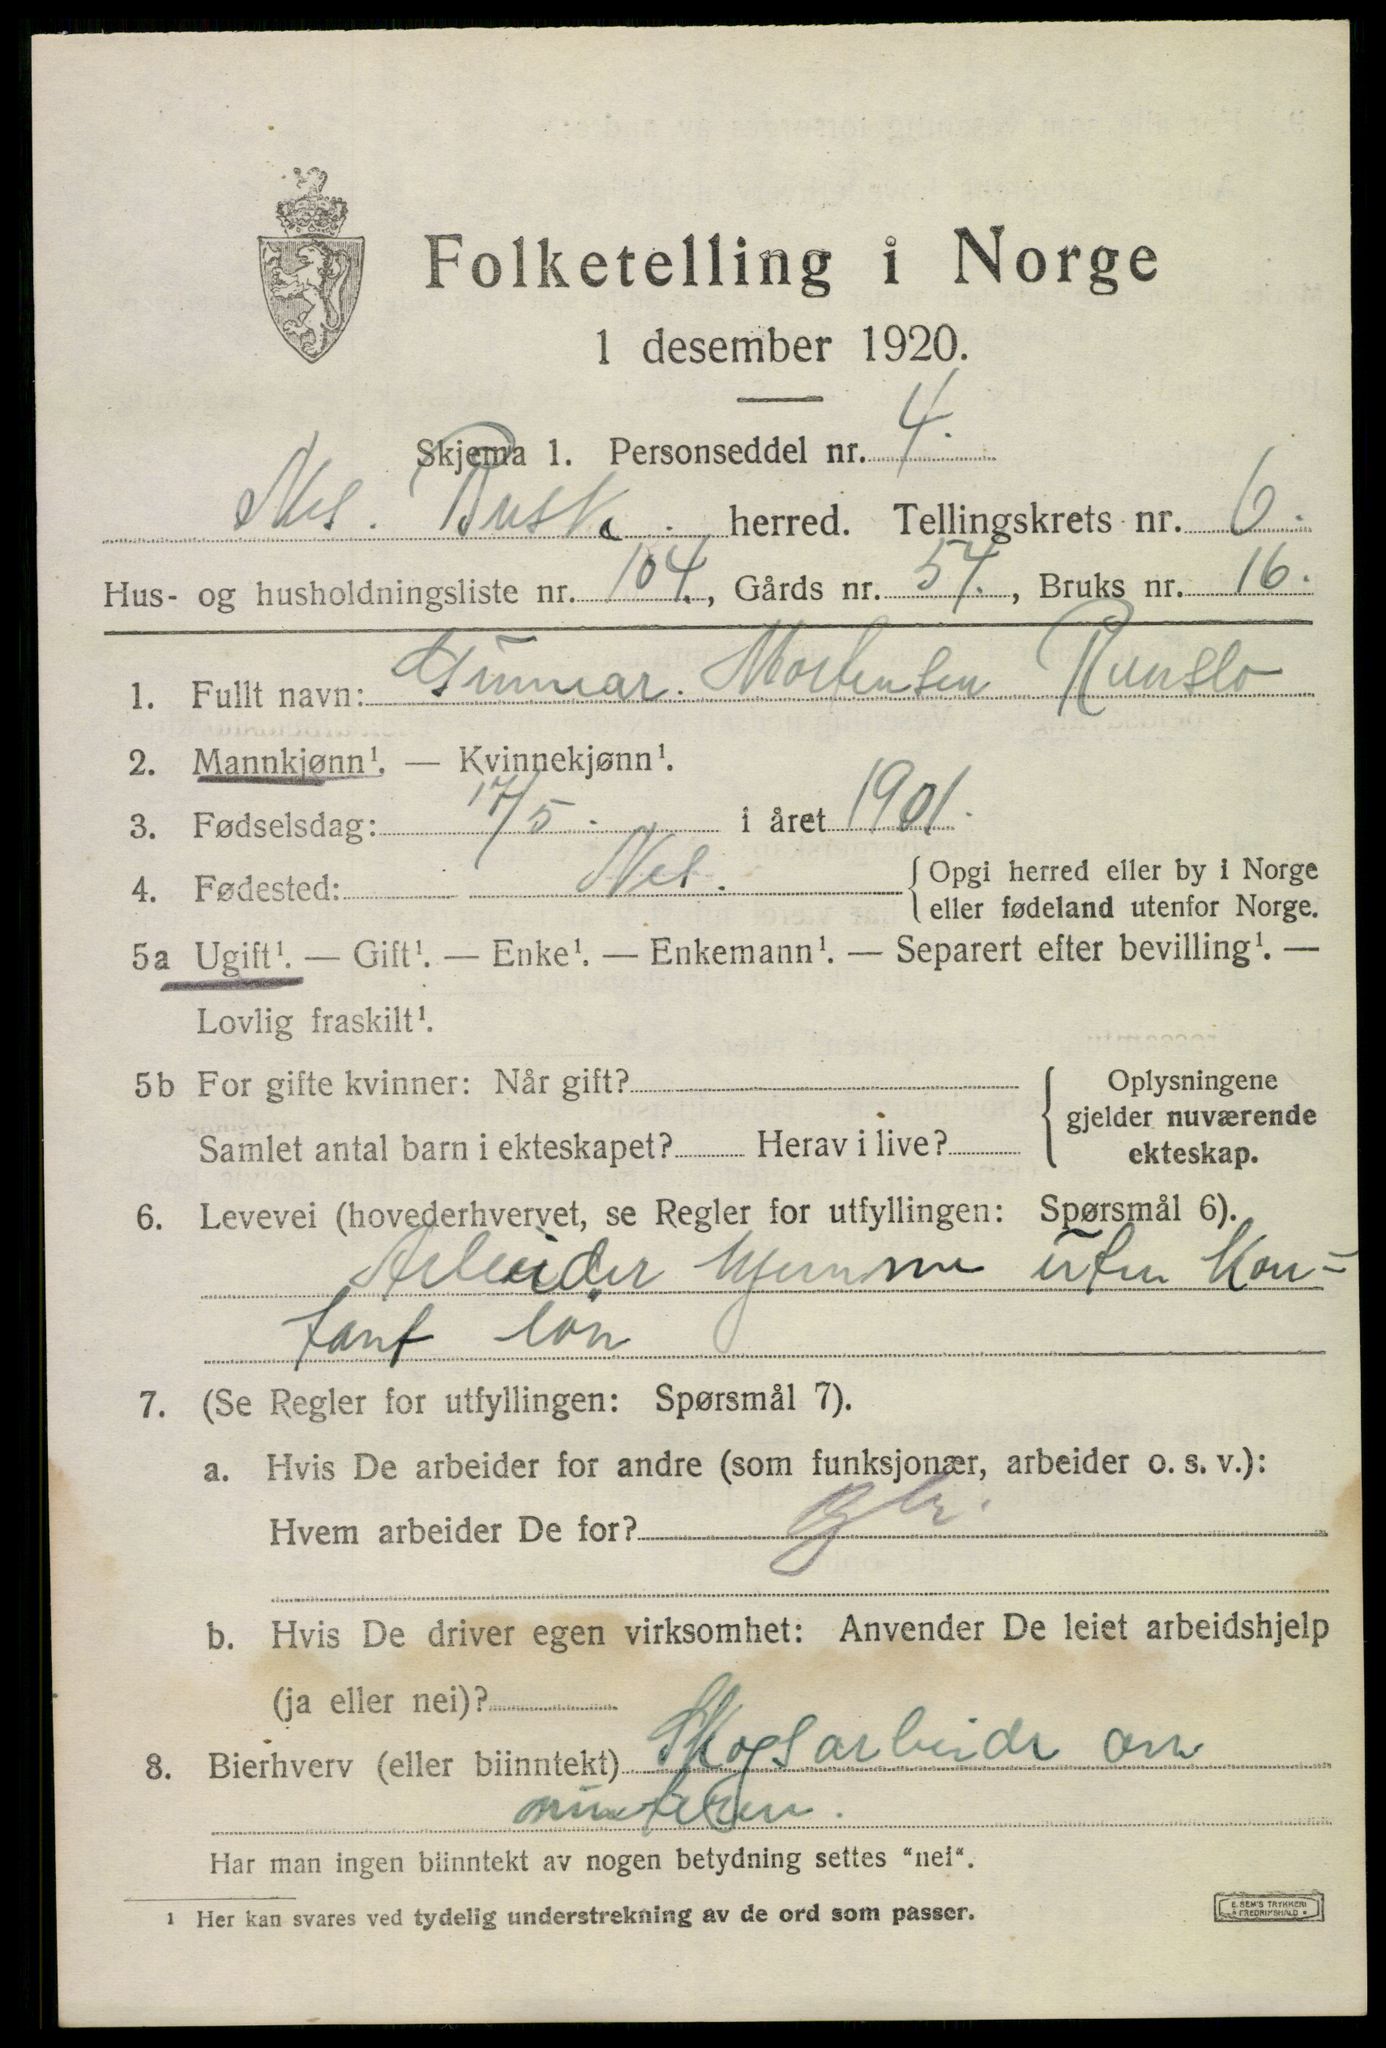 Folketelling i Norge
1 desember 1920.
Skjema 1. Personseddel nr. 4.
Nes. Busk. herred. Tellingskrets nr. 6.
Hus- og husholdningsliste nr. 104., Gårds nr. 54., Bruks nr. 16.
1. Fullt navn: Gunnar. Mortensen Runslo
2. Mannkjønn¹. — Kvinnekjønn¹.
3. Fødselsdag: 17/5. i året 1901.
4. Fødested: Nes. { Opgi herred eller by i Norge
eller fødeland utenfor Norge.
5a Ugift¹. — Gift¹. — Enke¹. — Enkemann¹. — Separert efter bevilling¹. —
Lovlig fraskilt¹.
5b For gifte kvinner: Når gift? { Oplysningene
gjelder nuværende
Samlet antal barn i ekteskapet? Herav i live? ekteskap.
6. Levevei (hovederhvervet, se Regler for utfyllingen: Spørsmål 6).
Arbeider hjemme uten kon-
tant løn
7. (Se Regler for utfyllingen: Spørsmål 7).
a. Hvis De arbeider for andre (som funksjonær, arbeider o. s. v.):
Hvem arbeider De for?
b. Hvis De driver egen virksomhet: Anvender De leiet arbeidshjelp
(ja eller nei)?
8. Bierhverv (eller biinntekt) Skogsarbeide om
vinteren.
Har man ingen biinntekt av nogen betydning settes “nei“.
¹ Her kan svares ved tydelig understrekning av de ord som passer.
E. SEM'S TRYKKERI
FREDRIKSHALD